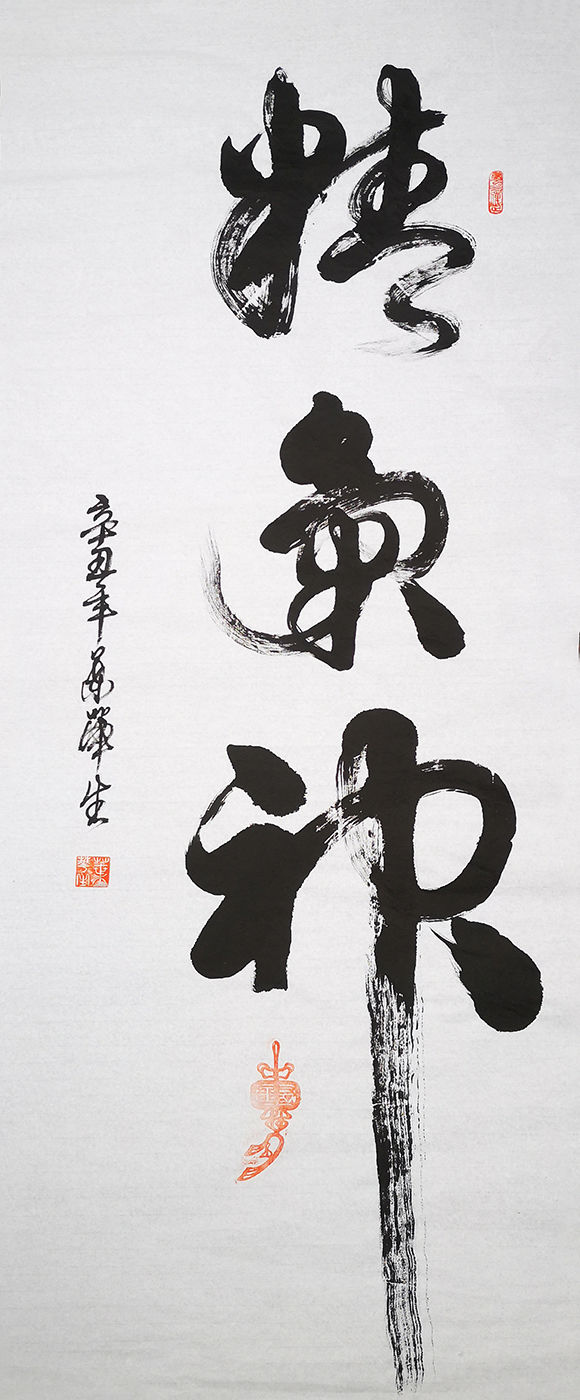 精氣神
辛丑年 生